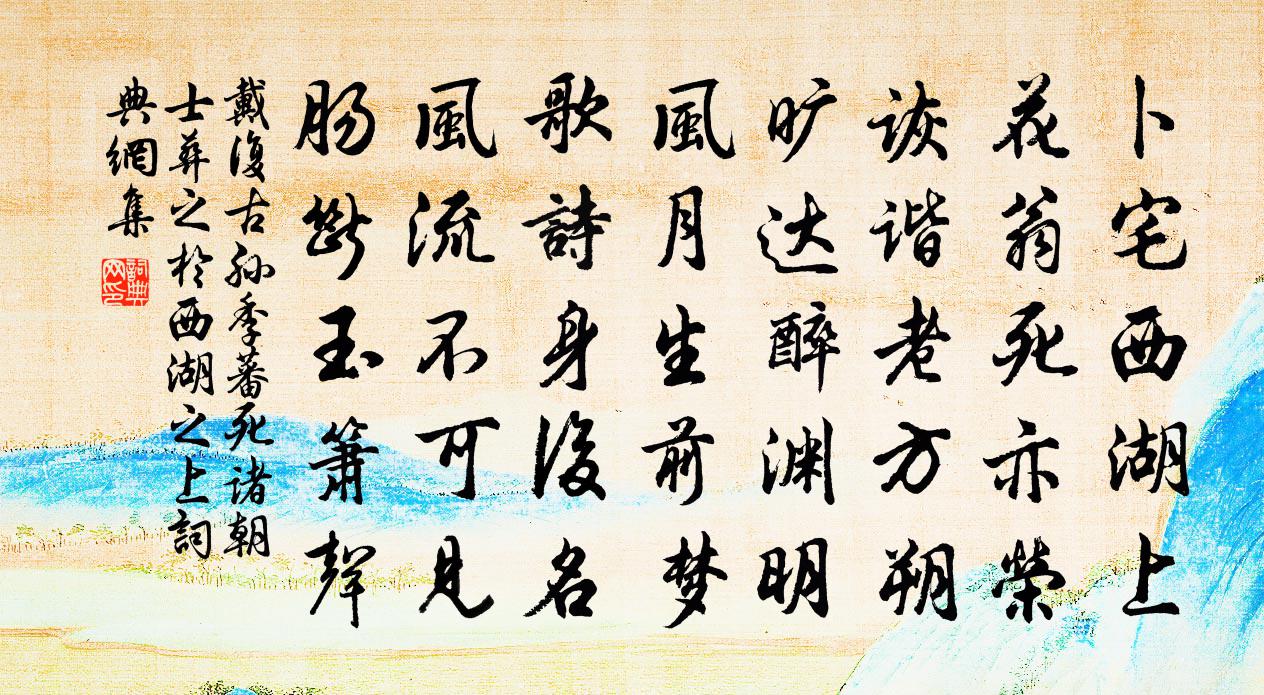 卜宅西湖上
花翁死亦榮
诙谐老方朔
旷达醉渊明
風月生前梦
歌詩身後名
風流不可見
肠斷玉箫聲
戴復古孙季蕃死诸朝
士葬之於西湖之上詞
典網集
詞典网印